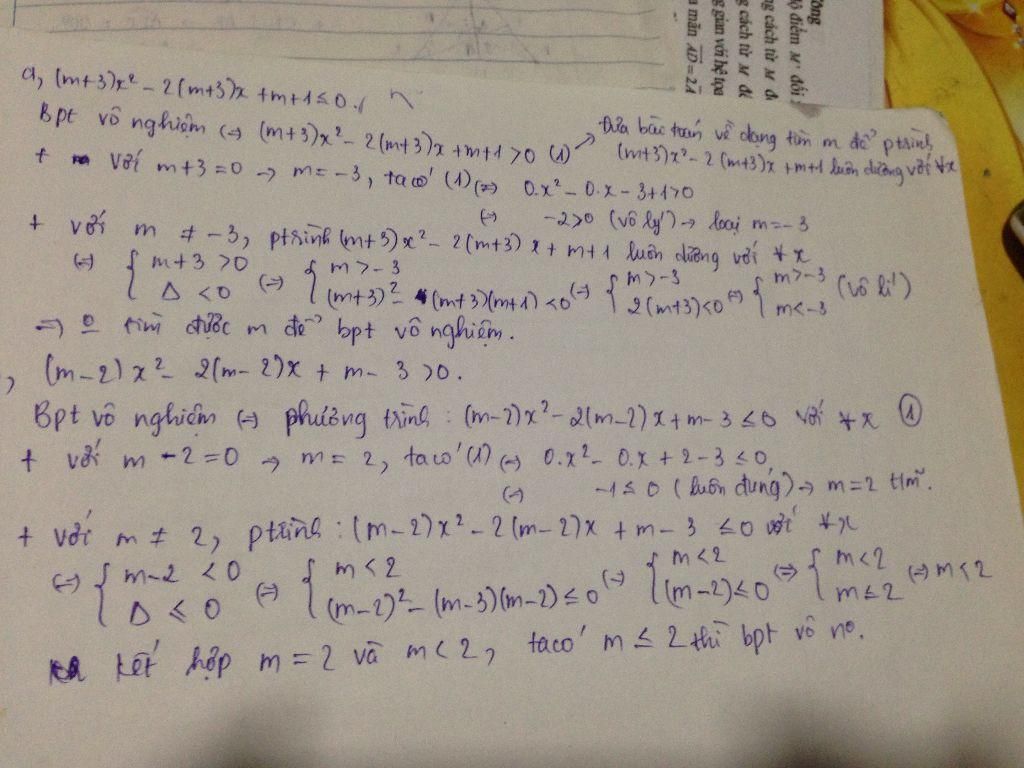 ường
độ điểm M' đối
g cách từ M đ
g cách từ M đế
g gian với hệ tọa
a mãn AD = 2A
a, (m+3)x² - 2(m+3)x + m+1 ≤ 0.
Bpt vô nghiệm (=) (m+3)x² - 2(m+3)x + m+1 > 0 (1)
Đưa bài toán về dạng tìm m để ptrình
(m+3)x² - 2(m+3)x + m+1 luôn dương với ∀x
+ Với m+3 = 0 → m = -3, ta có (1) (=) 0.x² - 0.x - 3+1 > 0
(=) -2 > 0 (vô lý) → loại m = -3
+ với m ≠ -3, ptrình (m+3)x² - 2(m+3)x + m+1 luôn dương với ∀x
(=) { m+3 > 0 (=) { m > -3 (=) { m > -3 (=) { m > -3 (vô lí)
Δ < 0 (m+3)² - (m+3)(m+1) < 0 2(m+3) < 0 m < -3
=) o tìm được m để bpt vô nghiệm.
, (m-2)x² - 2(m-2)x + m-3 > 0.
Bpt vô nghiệm (=) phương trình: (m-2)x² - 2(m-2)x + m-3 ≤ 0 với ∀x (1)
+ với m-2 = 0 → m = 2, ta có (1) (=) 0.x² - 0.x + 2-3 ≤ 0
(=) -1 ≤ 0 (luôn đúng) → m = 2 t/m.
+ với m ≠ 2, ptrình: (m-2)x² - 2(m-2)x + m-3 ≤ 0 với ∀x
(=) { m-2 < 0 (=) { m < 2 (=) { m < 2 (=) { m < 2 (=) m < 2
Δ ≤ 0 (m-2)² - (m-3)(m-2) ≤ 0 (m-2) ≤ 0 m ≤ 2
Kết hợp m = 2 và m < 2, ta có m ≤ 2 thì bpt vô no.